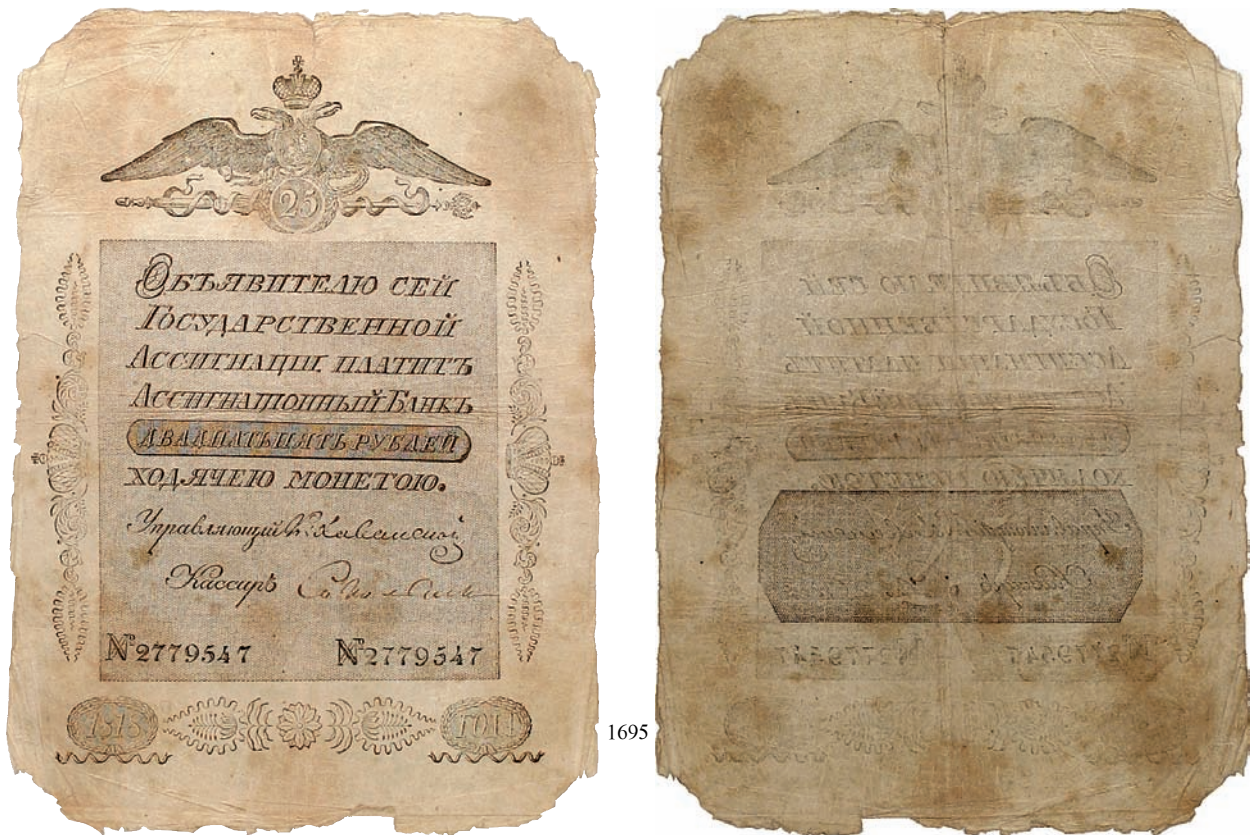 25
Объявителю сей
Государственной
Ассигнации платитъ
Ассигнационный Банкъ
двадцать пять рублей
ходячею монетою.
Управляющій
Кассиръ
№ 2779547 № 2779547
1818 года
1695